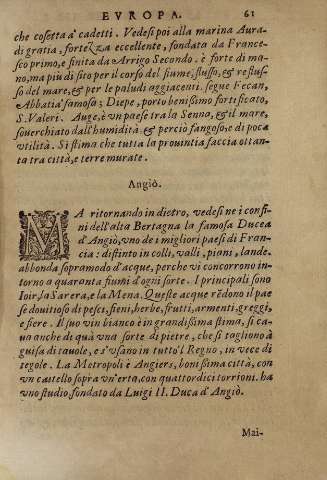 EVROPA. 61
che cosetta à cadetti. Vedesi poi alla marina Aura-
di gratia, fortezza eccellente, fondata da France-
sco primo, e finita da Arrigo Secondo. è forte di ma-
no, ma più di sito per il corso del fiume, flusso, & reflus-
so del mare, & per le paludi aggiacenti. segue Fecan,
Abbatia famosa; Diepe, porto benissimo fortificato,
S. Valeri. Auge, è un paese tra la Senna, & il mare,
souerchiato dall'humidità & perciò fangoso, e di poca
vtilità. Si stima che tutta la prouintia faccia ottan-
ta tra città, e terre murate.
Angiò.
MA ritornando in dietro, vedesi ne i confi-
ni dell'alta Bertagna la famosa Ducea
d'Angiò, vno de i migliori paesi di Fran-
cia: distinto in colli, valli, piani, lande.
abbonda sopramodo d'acque, perche vi concorrono in-
torno a quaranta fiumi d'ogni sorte. I principali sono
Loir, la Sarera, e la Mena. Queste acque rēdono il pae
se douitioso di pesci, fieni, herbe, frutti, armenti, greggi,
e fiere. Il suo vin bianco è in grandissima stima, si ca-
ua anche di quà vna sorte di pietre, che si tagliono à
guisa di tauole, e s'vsano in tutto'l Regno, in vece di
tegole. La Metropoli è Angiers, bonissima città, con
vn castello sopra vn'erta, con quattordici torrioni. ha
vno studio, fondato da Luigi II. Duca d'Angiò.
Mai-